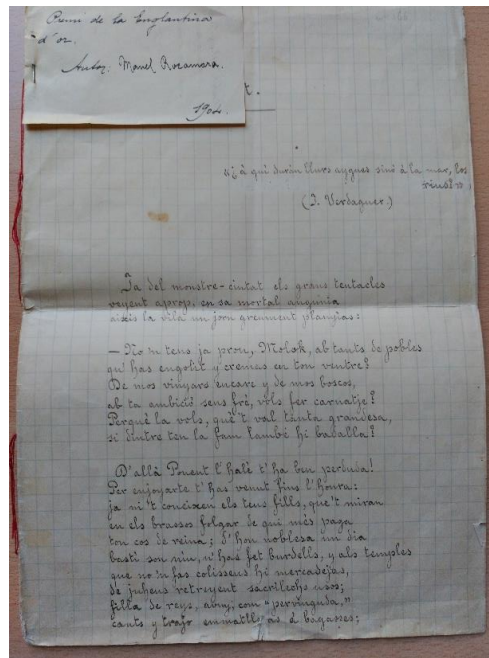 Premi de la Englantina
d'or.
Autor: Manel Rocamora.
1904.
t.
«¿á qui durán llurs aygues sinó á la mar, los
rius?»
(J. Verdaguer.)
Ja del monstre-ciutat els grans tentacles
veyent aprop, en sa mortal angunia
aixís la vila un jorn greument planyías:
— No'n tens ja prou, Molok, ab tants de pobles
qu'has engolit y cremes en ton ventre?
De mos vinyars encare y de mos boscos,
ab ta ambició sens fré, vols fer carnatje?
Perquè la vols, què't val tánta grandesa,
si dintre teu la fam també hi badalla?
D'allá Ponent l'halé t'ha ben perduda!
Per enjoyarte t'has venut fins l'honra:
ja ni't coneixen els teus fills, que't miran
en els brassos folgar de qui més paga
ton cos de reina; d'hon noblesa un dia
bastí son niu, n'has fet burdells, y als temples
que no'n fas colisseus hi mercadejas,
de juheus retreyent sacrílechs usos;
filla de reys, avuy, com "pervinguda,"
cants y trajo de bagasses;